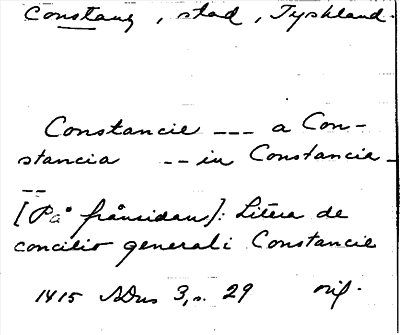 Constanz, stad, Tyskland.
Constancie --- a Con-
stancia -- in Constancie -
--
[På frånsidan]: Litera de
concilio generali Constancie
1415 SDns 3, s. 29 orig.